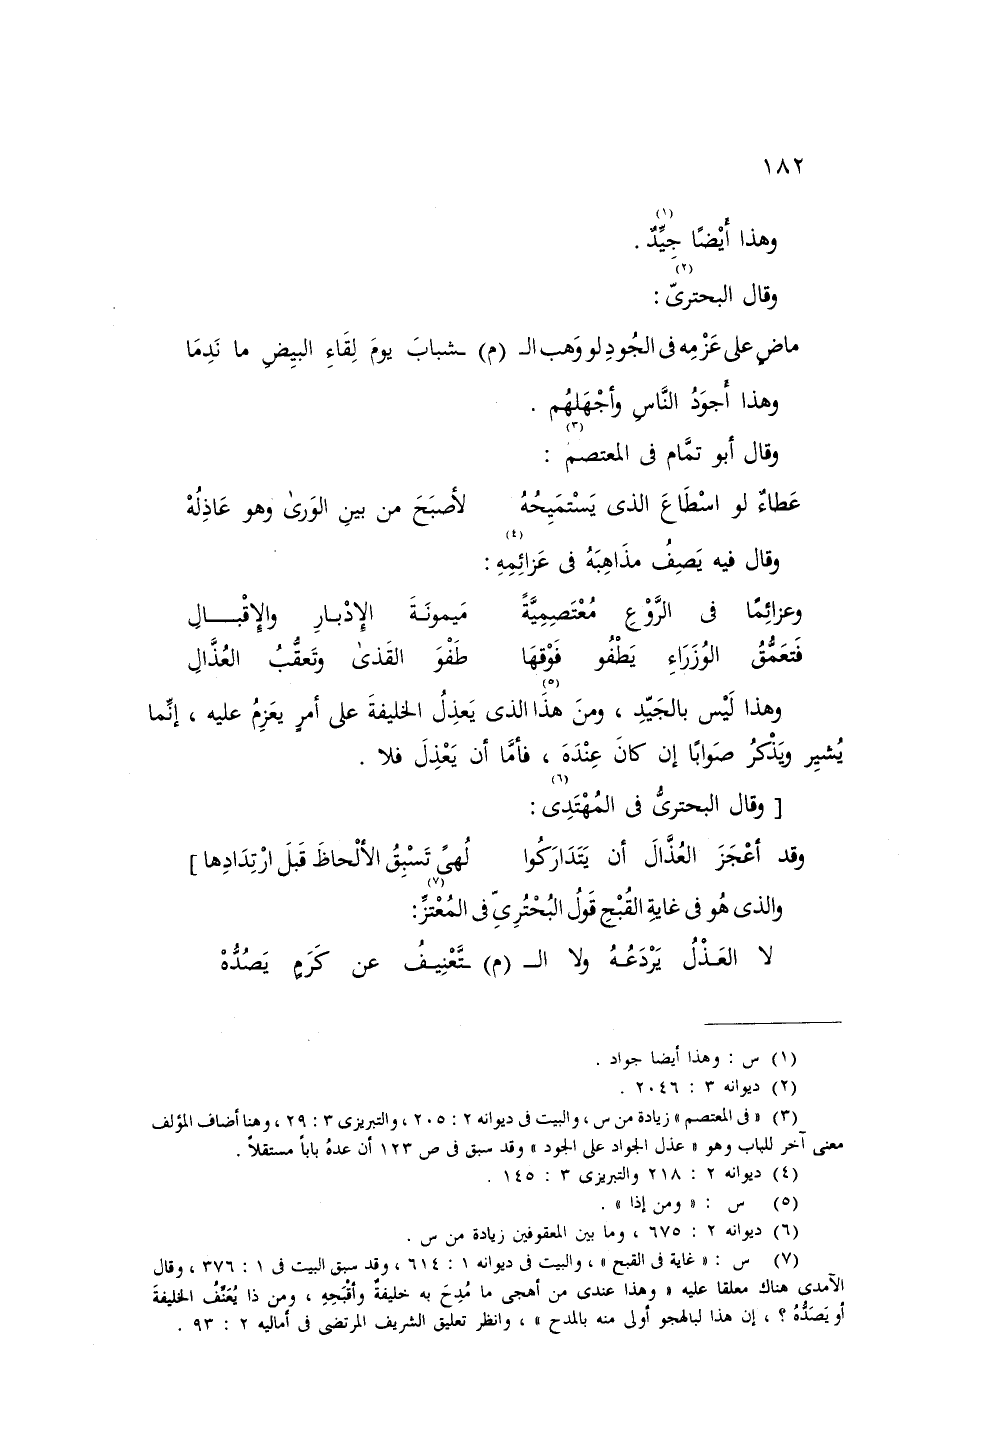 ١٨٢
وهذا أَيْضًا جيِّدٌ (١) .
وقال البحترىّ (٢) :
ماضٍ على عَزْمِه فى الجُودِ لو وَهب الـ (م) ـشبابَ يومَ لِقَاءِ البيِضِ ما نَدِمَا
وهذا أَجوَدُ النَّاسِ وأجْهَلهُم .
وقال أبو تمَّام فى المعتصم (٣) :
عَطاءٌ لو اسْطَاعَ الذى يَسْتمَيِحُهُ لأصبَحَ من بينِ الوَرىٰ وهو عَاذِلُهْ
وقال فيه يَصِفُ مذَاهِبَهُ فى عَزائِمِهِ (٤) :
وعزائِمًا فى الرَّوْعِ مُعْتَصِمِيَّةً مَيمونَـةَ الإِدْبـارِ والإِقْبـــالِ
فَتَعَمُّقُ الوُزَرَاءِ يَطْفُو فَوْقهَا طَفْوَ القَذىٰ وتَعقُّبُ العُذَّالِ
وهذا لَيْس بالجَيّدِ ، ومنَ هذَا (٥) الذى يَعذِلُ الخليفةَ على أمرٍ يعَزِمُ عليه ، إنَّما
يُشيِر ويَذْكرُ صوَابًا إن كانَ عِنْدَهَ ، فأمَّا أن يَعْذِلَ فلا .
[ وقال البحترىُّ فى المُهْتَدِى (٦) :
وقد أعْجَزَ العُذَّالَ أن يَتَدَارَكُوا لُهىً تَسْبِقُ الألْحاظَ قَبلَ ارْتِدَادِها ]
والذى هُو فى غايةِ القُبْحِ (٧) قَولُ البُحْتُرِىّ فى المُعْتزِّ:
لا العَـذْلُ يَرْدَعُـهُ ولا الــ (م) ـتَّعْنِيـفُ عن كَرَمٍ يَصُدُّهْ
(١) س : وهذا أيضا جواد .
(٢) ديوانه ٣ : ٢٠٤٦ .
(٣) « فى المعتصم » زيادة من س ، والبيت فى ديوانه ٢ : ٢٠٥ ، والتبريزى ٣ : ٢٩ ، وهنا أضاف المؤلف
معنى آخر للباب وهو « عذل الجواد على الجود » وقد سبق فى ص ١٢٣ أن عدهُ باباً مستقلاً .
(٤) ديوانه ٢ : ٢١٨ والتبريزى ٣ : ١٤٥ .
(٥) س : « ومن إذا » .
(٦) ديوانه ٢ : ٦٧٥ ، وما بين المعقوفين زيادة من س .
(٧) س : « غاية فى القبح » ، والبيت فى ديوانه ١ : ٦١٤ ، وقد سبق البيت فى ١ : ٣٧٦ ، وقال
الآمدى هناك معلقا عليه « وهذا عندى من أهجى ما مُدِحَ به خليفةٌ وأقْبَحِهِ ، ومن ذا يُعَنِّفُ الخليفةَ
أو يَصَدُّهُ ؟ ، إن هذا لبالهجو أولى منه بالمدح » ، وانظر تعليق الشريف المرتضى فى أماليه ٢ : ٩٣ .